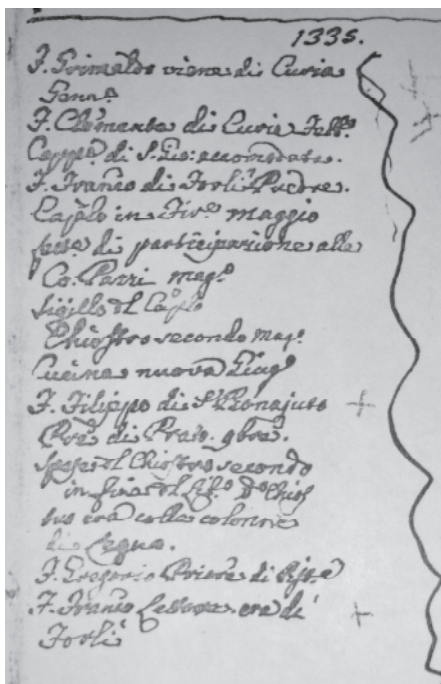 1335.
F. Grimaldo viene di Curia
Genn.o
F. Clemente di Curia Febb.o
Capp.a di S. Gio: accomodata.
F. Franco di Forlì Priore.
Cap.lo in Fir.e maggio
di participazione alle
Co. Pazzi mag.o
Sigillo del Cap.lo
Chiostro secondo mag.o
Cucina nuova Giug.o
F. Filippo di S.r Bonajuto +
di Prato. 9bre.
spese del Chiostro secondo
in fine del lib.o D.o Chios
tro era colle colonne
di legno.
F. Gregorio Priore di
F. Franco era di +
Forlì